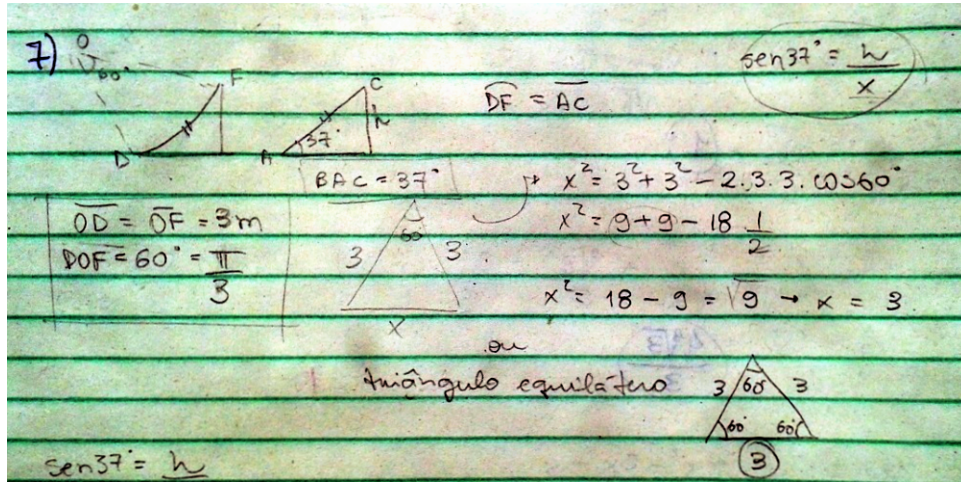 7)
O
60°
F
D
C
A
37°
h
D͡F = A͞C
sen37° = h/x
BAC = 37°
O͞D = O͞F = 3m
DOF = 60° = π/3
60
3 3
x
x² = 3² + 3² - 2.3.3. cos60°
x² = 9+9 - 18 1/2
x² = 18 - 9 = √9 → x = 3
ou
triângulo equilátero
3 60° 3
60° 60°
3
sen37° = h